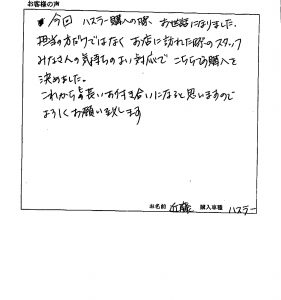 お客様の声
今回 ハスラー購入の際、お世話になりました。
担当の方だけではなく お店に訪れた際のスタッフ
みなさんの気持ちのよい対応で こちらでの購入を
決めました。
これからも長いお付き合いになると思いますので
よろしくお願い致します
お名前 近藤 購入車種 ハスラー